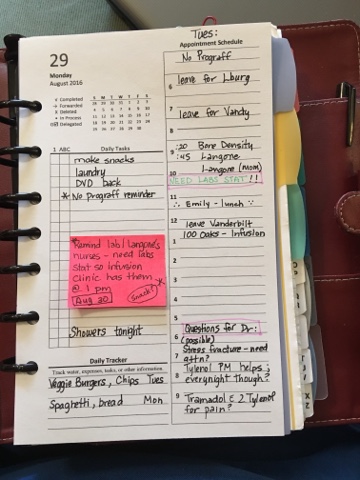 29
Monday
August 2016
Completed
Forwarded
Deleted
In Process
Delegated
S M T W T F S
1 ABC Daily Tasks
make snacks
laundry
DVD back
* No Prograff reminder
*Remind lab/Langone's
nurses - need labs
stat so Infusion
Clinic has them
@ 1 pm
Aug 30
Snacks *
Showers tonight
Daily Tracker
Track water, expenses, tasks, or other information.
Veggie Burgers, Chips Tues
Spaghetti, bread Mon
Tues:
Appointment Schedule
No Prograff
6
leave for Lburg
7
leave for Vandy
8
9 :20 Bone Density
:45 Langone
10 Langone (mom)
NEED LABS STAT!!
11
Emily - lunch
12
leave Vanderbilt
1 100 Oaks - Infusion
2
3
4
5
Questions for Dr:
6 (possible)
Stress fracture - need
7 attn?
Tylenol PM helps;
8 everynight though?
9 Tramadol & 2 Tylenol
for pain?